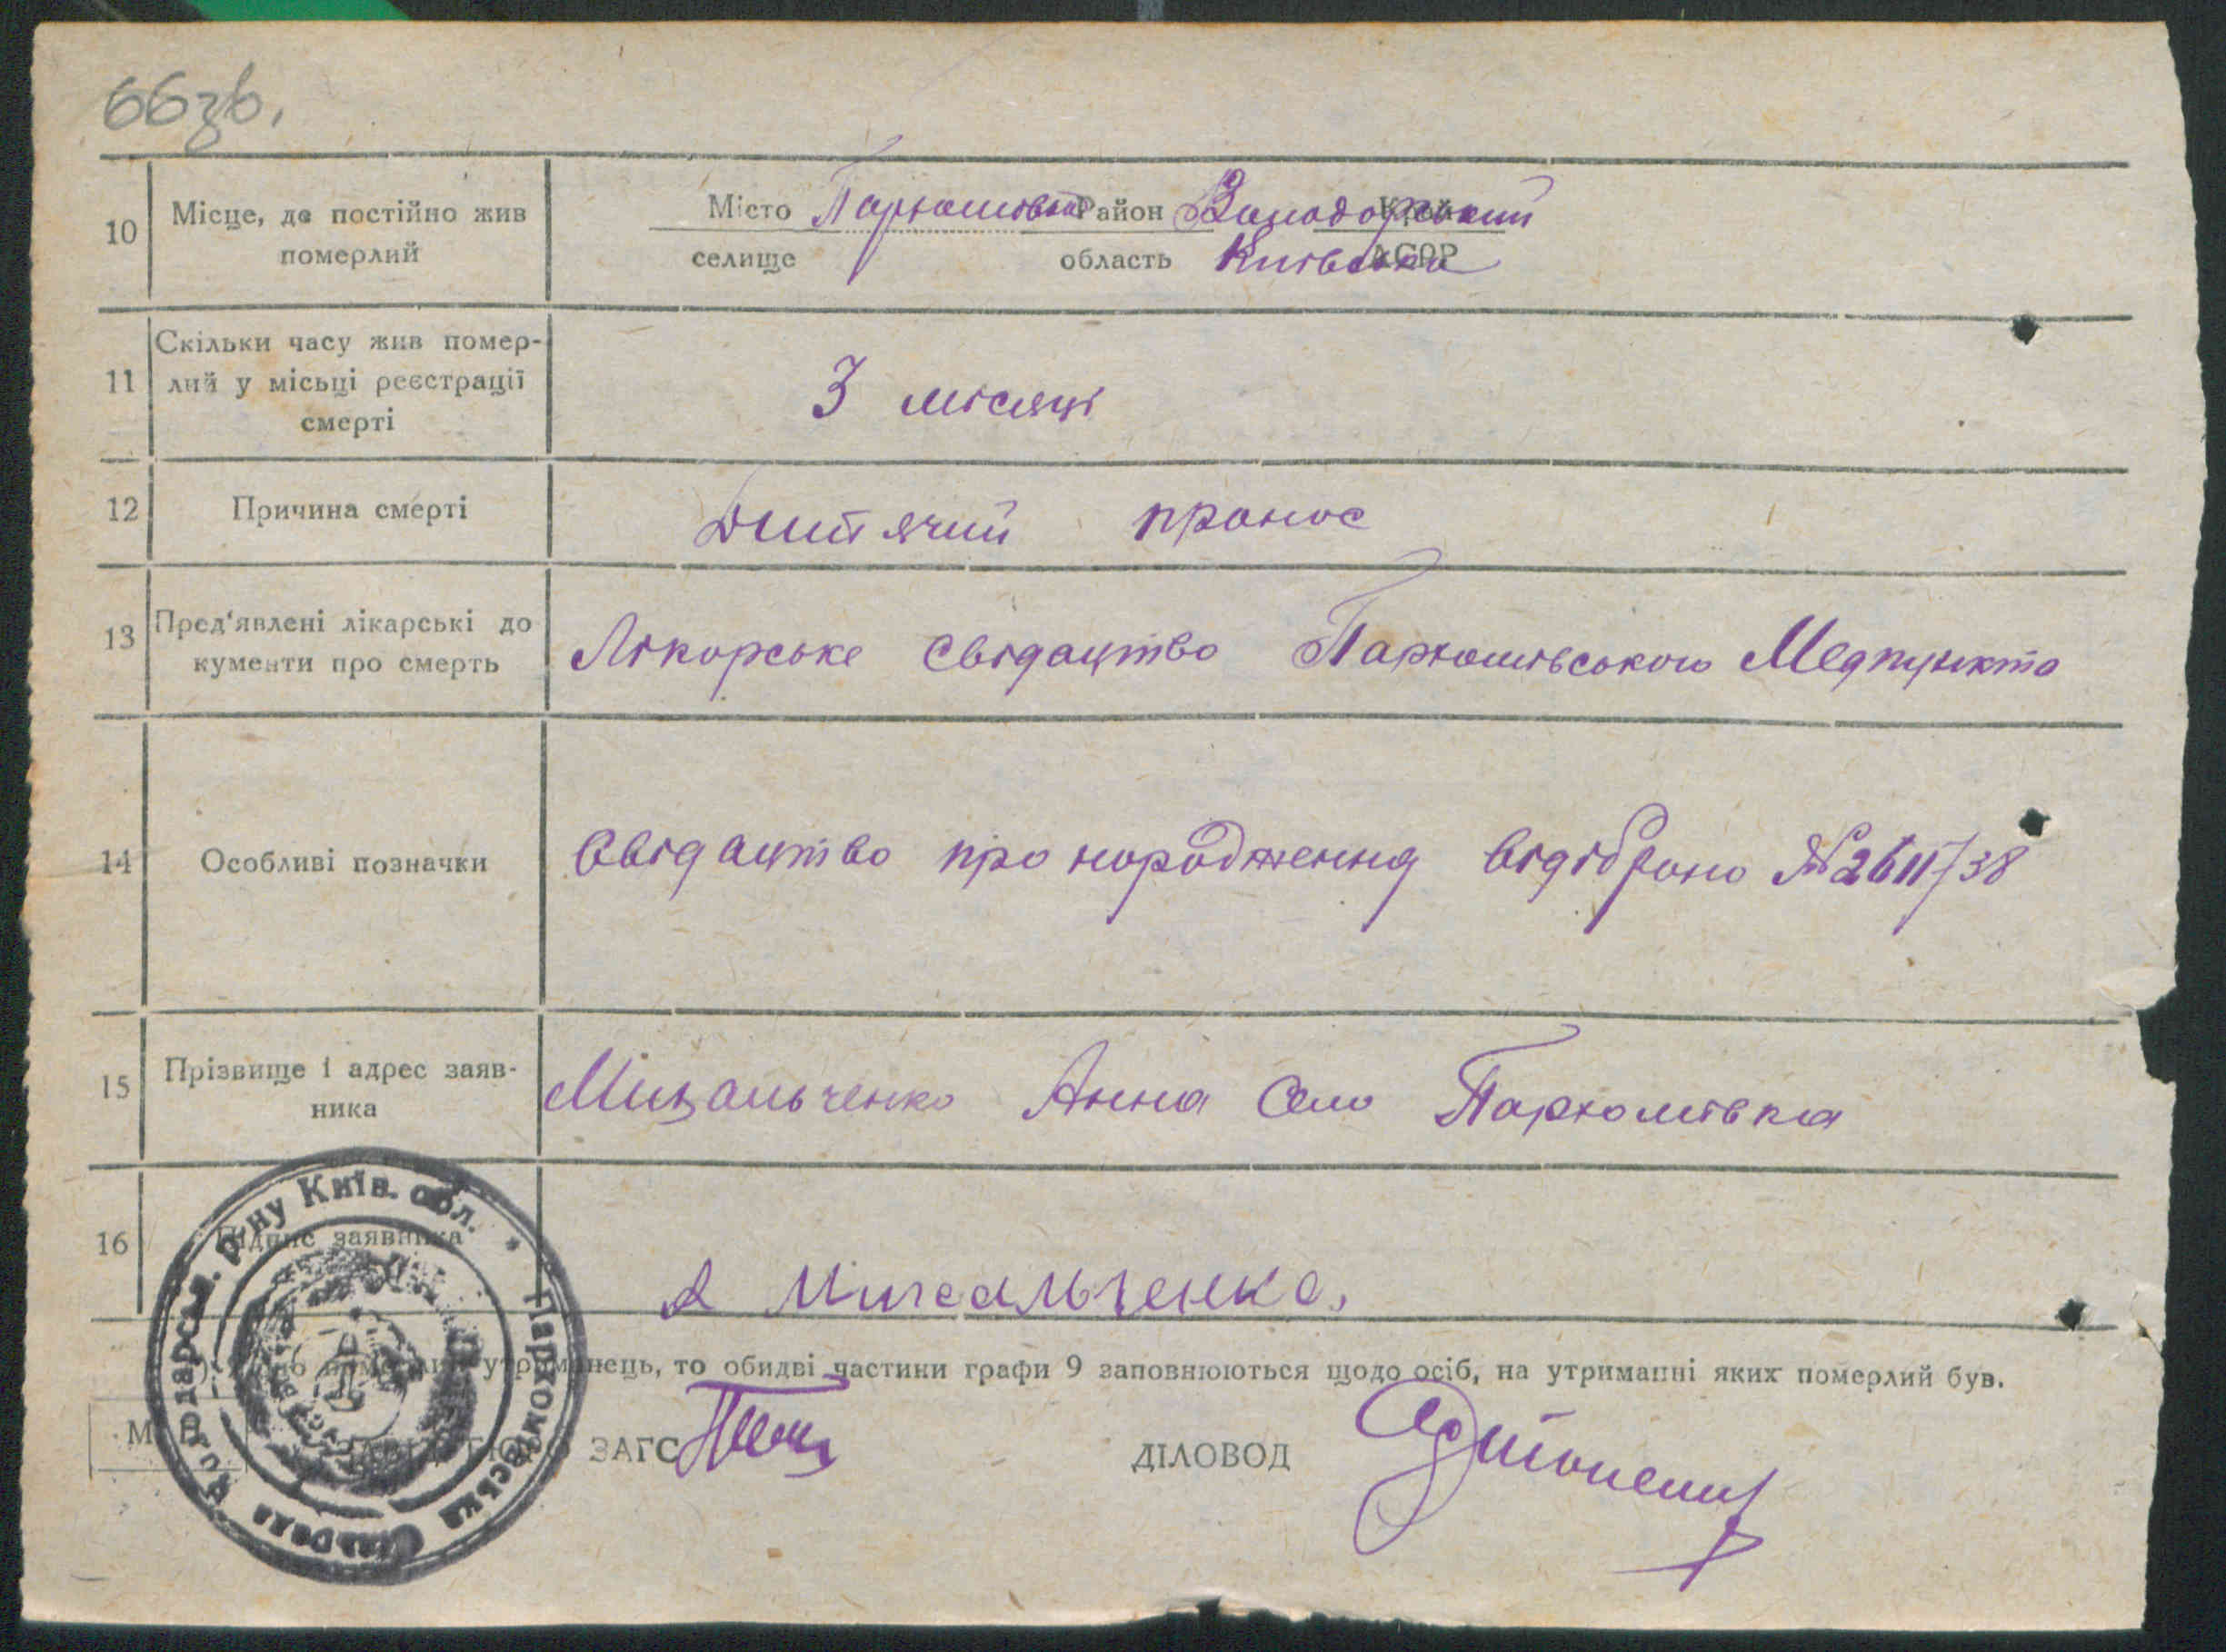 66зв.
10 Місце, де постійно жив померлий
Місто Пархомовка Район Володорський Край
селище область Київська АСОР
11 Скільки часу жив помер-
лий у місьці реєстрації
смерті
3 місяці
12 Причина смерті Дитячий пронос
13 Пред'явлені лікарські до
кументи про смерть
Лікорське свідацтво Пархомівського Медпункто
14 Особливі позначки Свідацтво про народження відібрано № 2611/38
15 Прізвище і адрес заяв-
ника
Михальченко Анна Село Пархомівка
16 Підпис заявника
А Михальченко.
утриманець, то обидві частини графи 9 заповнюються щодо осіб, на утриманні яких померлий був.
М. П. ЗАГС ДІЛОВОД
Володарськ. р-ну Київ. обл. * Пархомівська Сільрада